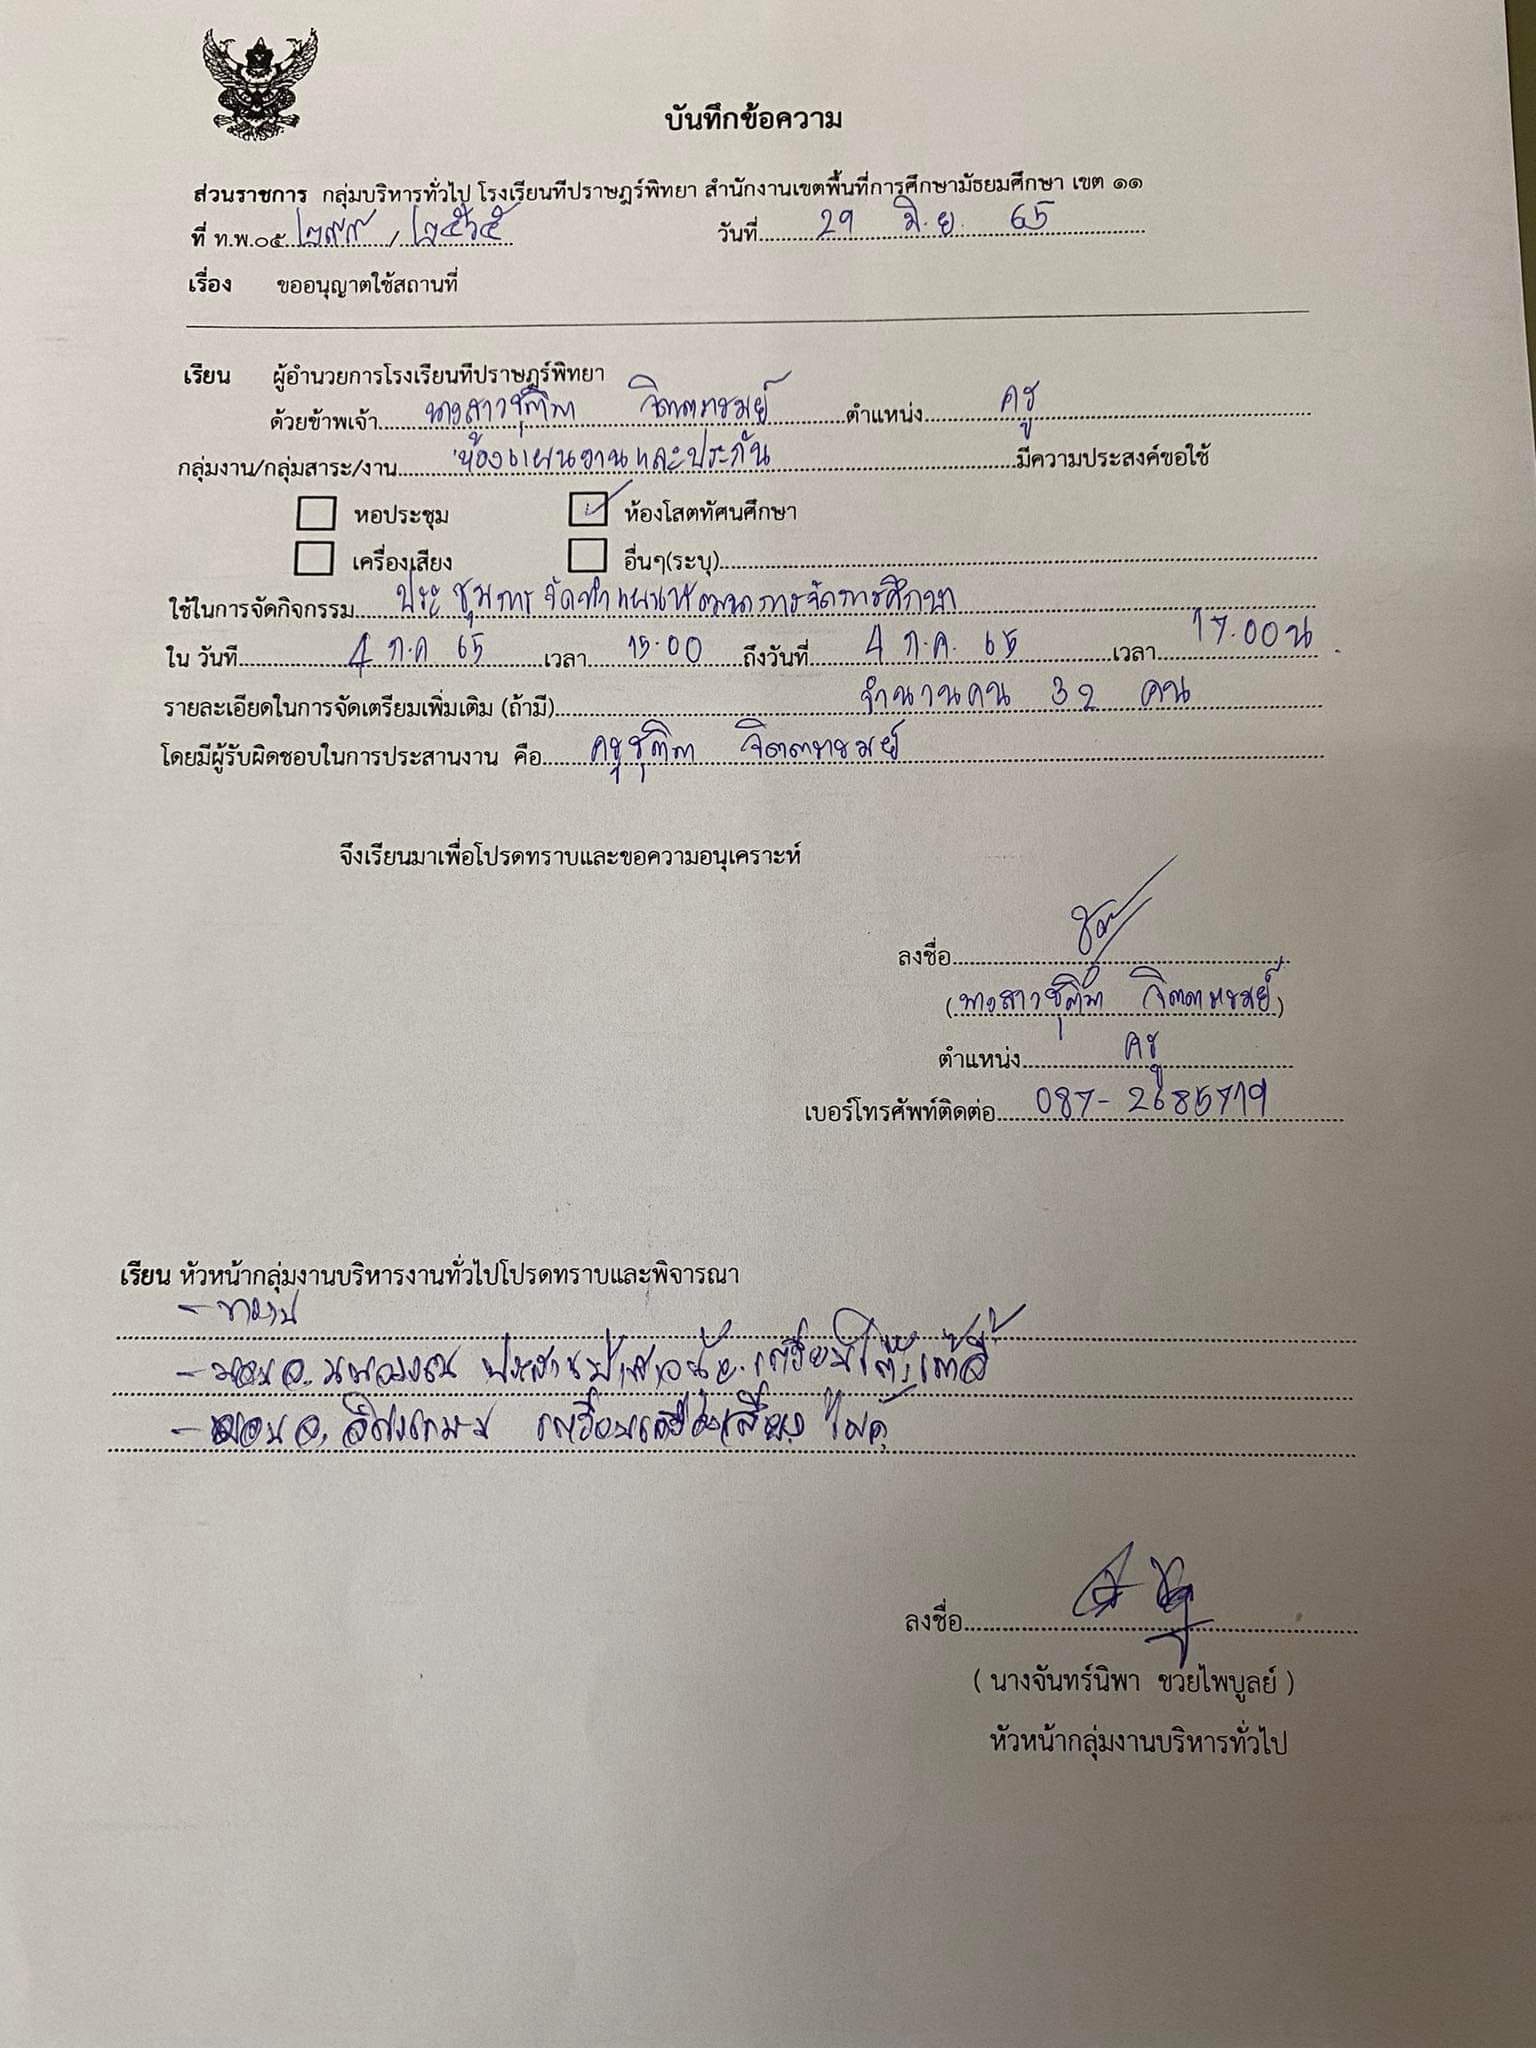 บันทึกข้อความ
ส่วนราชการ กลุ่มบริหารทั่วไป โรงเรียนทีปราษฎร์พิทยา สำนักงานเขตพื้นที่การศึกษามัธยมศึกษา เขต ๑๑
ที่ ท.พ.๐๕ ๒๙๙ / ๒๕๖๕ วันที่ 29 มิ.ย. 65
เรื่อง ขออนุญาตใช้สถานที่
เรียน ผู้อำนวยการโรงเรียนทีปราษฎร์พิทยา
ด้วยข้าพเจ้า นางสาวชุติภา จิตตารมย์ ตำแหน่ง ครู
กลุ่มงาน/กลุ่มสาระ/งาน ห้องแผนงานและประกัน มีความประสงค์ขอใช้
หอประชุม ห้องโสตทัศนศึกษา
เครื่องเสียง อื่นๆ(ระบุ)
ใช้ในการจัดกิจกรรม ประชุมการจัดทำแผนพัฒนาการจัดการศึกษา
ใน วันที่ 4 ก.ค 65 เวลา 15.00 ถึงวันที่ 4 ก.ค. 65 เวลา 17.00น.
รายละเอียดในการจัดเตรียมเพิ่มเติม (ถ้ามี) จำนวนคน 32 คน
โดยมีผู้รับผิดชอบในการประสานงาน คือ ครูชุติภา จิตตารมย์
จึงเรียนมาเพื่อโปรดทราบและขอความอนุเคราะห์
ลงชื่อ
(นางสาวชุติภา จิตตารมย์)
ตำแหน่ง ครู
เบอร์โทรศัพท์ติดต่อ 087-2685719
เรียน หัวหน้ากลุ่มงานบริหารงานทั่วไปโปรดทราบและพิจารณา
- ทราบ
- มอบ อ. เตรียมโต๊ะเก้าอี้
- มอบ อ. เตรียมเครื่องเสียง ไมค์
ลงชื่อ
( นางจันทร์นิพา ขวยไพบูลย์ )
หัวหน้ากลุ่มงานบริหารทั่วไป